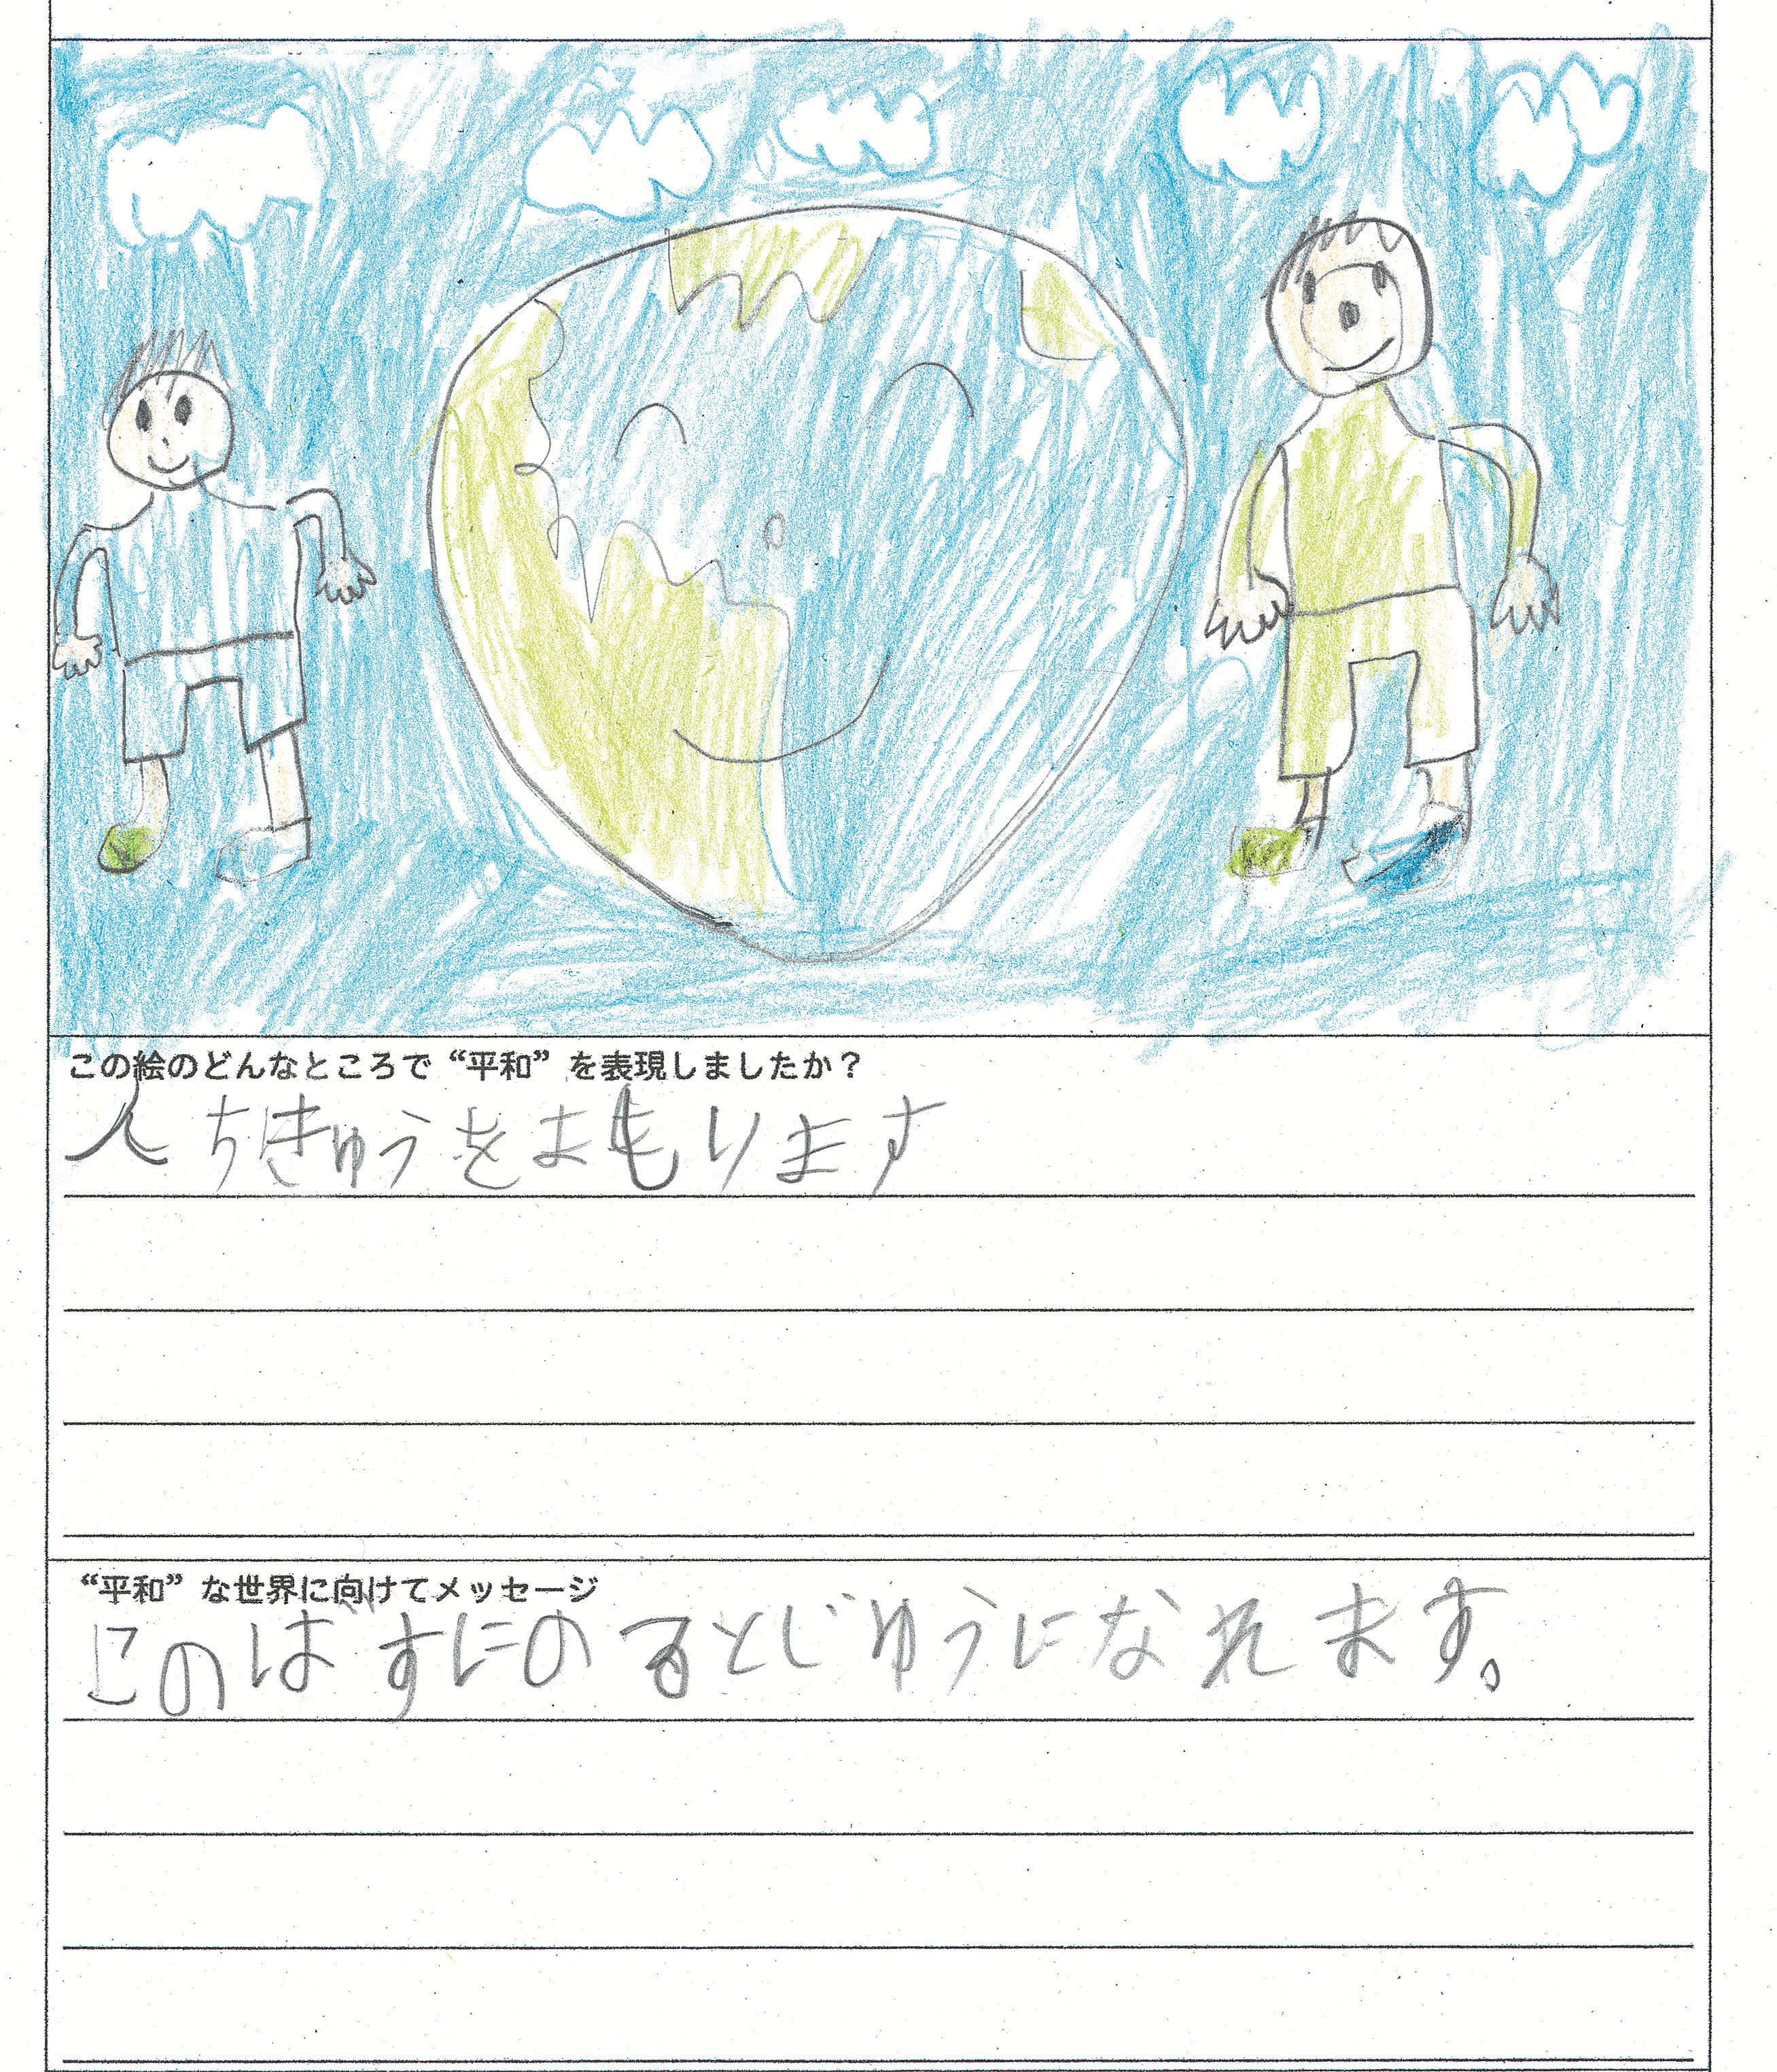 この絵のどんなところで“平和”を表現しましたか？
人ちきゅうをまもります
“平和”な世界に向けてメッセージ
このばすにのるとじゆうになれます。